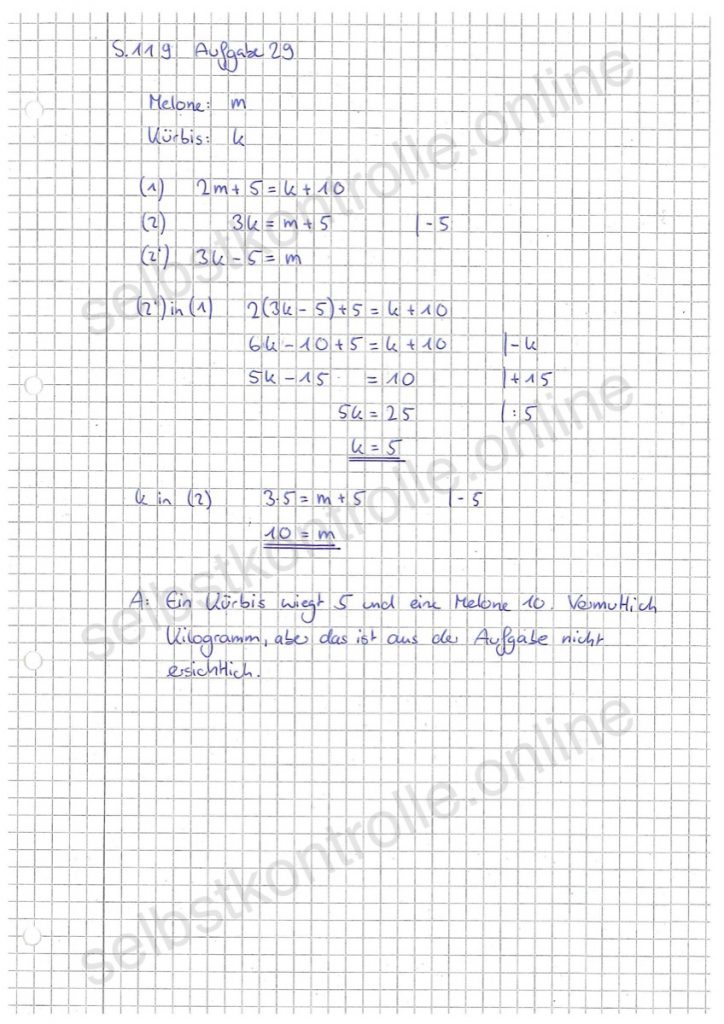 S.119 Aufgabe 29
Melone: m
Kürbis: k
(1) 2m + 5 = k + 10
(2) 3k = m + 5 |-5
(2') 3k - 5 = m
(2') in (1) 2(3k - 5) + 5 = k + 10
6k - 10 + 5 = k + 10 |-k
5k - 15 = 10 |+15
5k = 25 |:5
k = 5
k in (2) 3·5 = m + 5 |-5
10 = m
A: Ein Kürbis wiegt 5 und eine Melone 10. Vermutlich
Kilogramm, aber das ist aus der Aufgabe nicht
ersichtlich.
selbstkontrolle.online
selbstkontrolle.online
selbstkontrolle.online